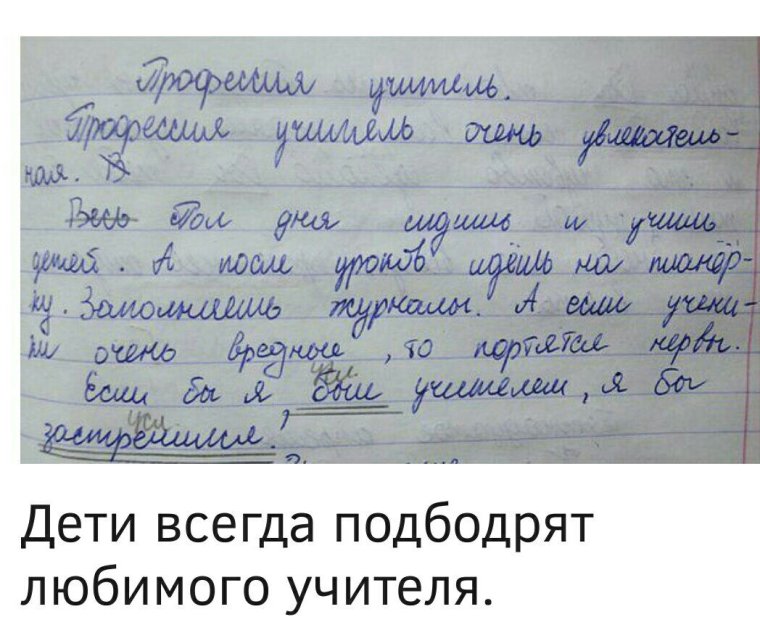 Профессия учитель.
Профессия учитель очень увлекатель-
ная. В
Весь Пол дня сидишь и учишь
детей. А после уроков идёшь на планёр-
ку. Заполняешь журналы. А если учени-
ки очень вредные, то портятся нервы.
Если бы я был учителем, я бы
усл.
застрелился.
усл.
Дети всегда подбодрят
любимого учителя.